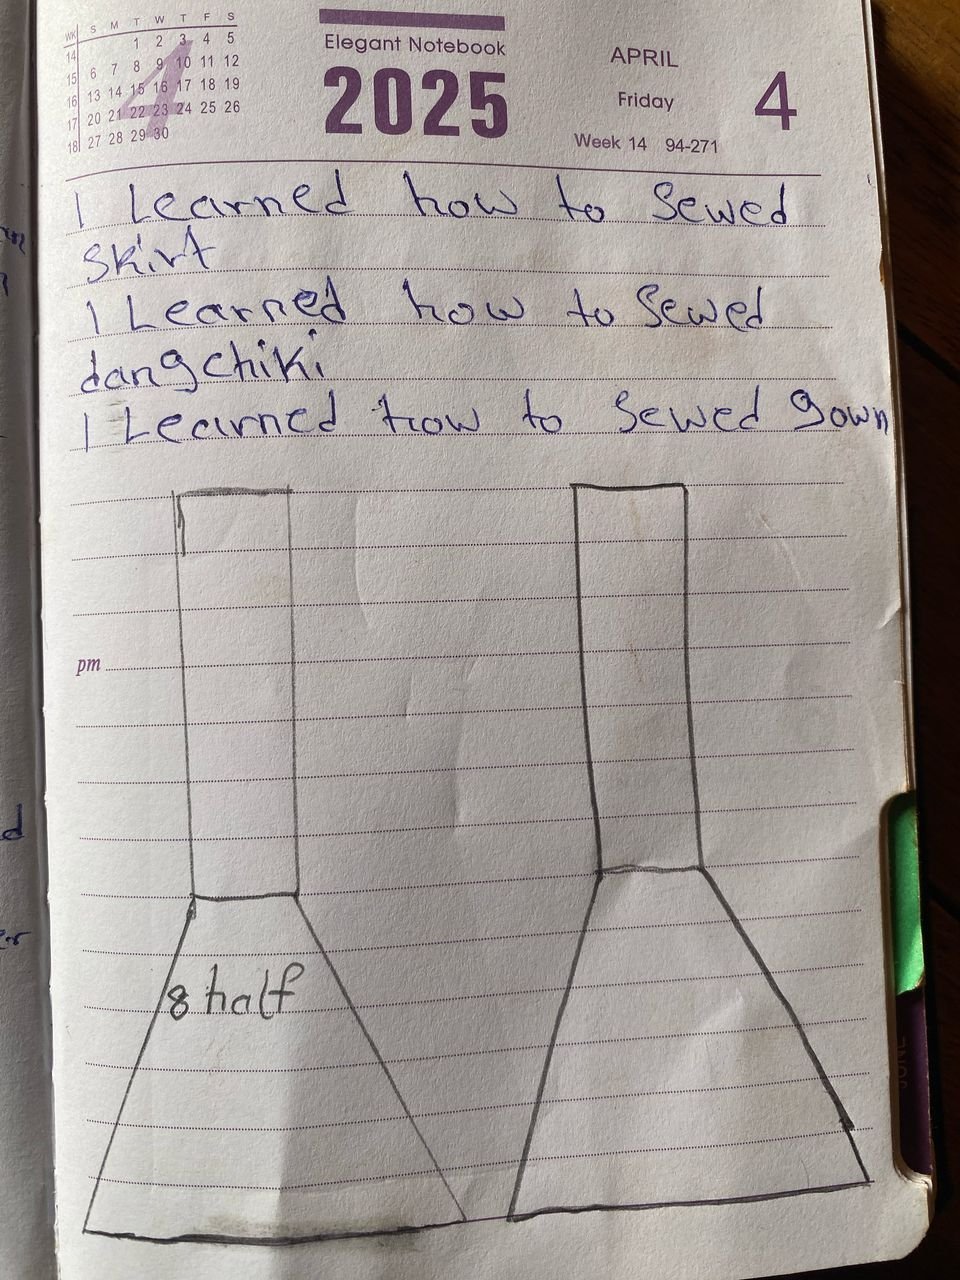 WK S M T W T F S
14 1 2 3 4 5
15 6 7 8 9 10 11 12
16 13 14 15 16 17 18 19
17 20 21 22 23 24 25 26
18 27 28 29 30
4
Elegant Notebook
2025
APRIL
Friday
4
Week 14 94-271
I Learned how to Sewed
skirt
I Learned how to Sewed
dangchiki
I Learned how to Sewed gown
pm
8 half
JUNE